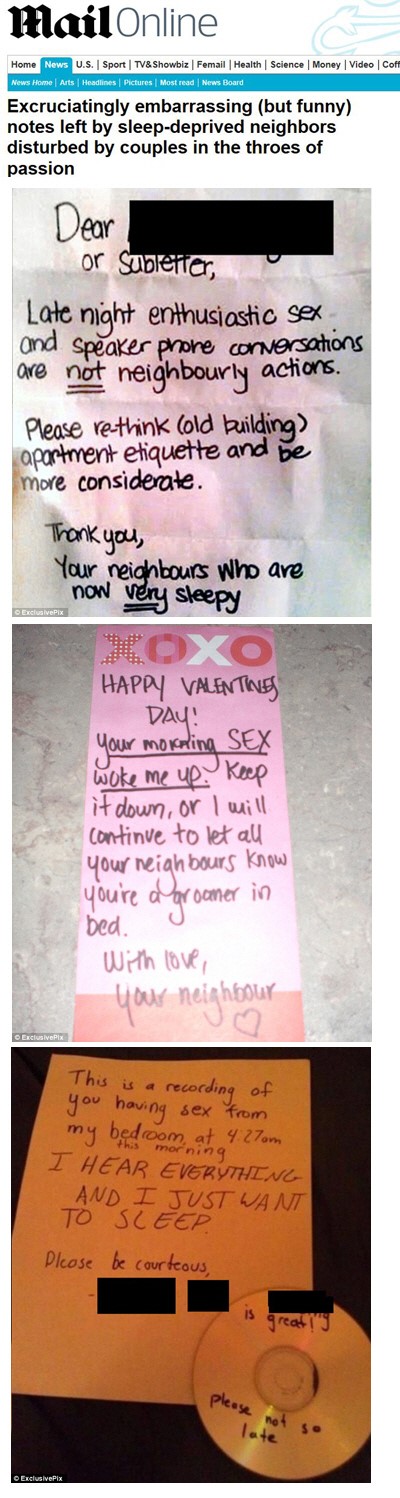 Mail Online
Home News U.S. Sport TV&Showbiz Femail Health Science Money Video Coff
News Home Arts Headlines Pictures Most read News Board
Excruciatingly embarrassing (but funny)
notes left by sleep-deprived neighbors
disturbed by couples in the throes of
passion
Dear
or Subletter,
Late night enthusiastic sex
and speaker phone conversations
are not neighbourly actions.
Please re-think (old building)
apartment etiquette and be
more considerate.
Thank you,
Your neighbours who are
now very sleepy
© ExclusivePix
XOXO
HAPPY VALENTINES
DAY!
Your morning SEX
woke me up. Keep
it down, or I will
continue to let all
your neighbours know
you're a groaner in
bed.
With love,
Your neighbour
© ExclusivePix
This is a recording of
you having sex from
my bedroom, at 4:27am
this morning
I HEAR EVERYTHING
AND I JUST WANT
TO SLEEP.
Please be courteous,
-
is great!
please not so
late
© ExclusivePix